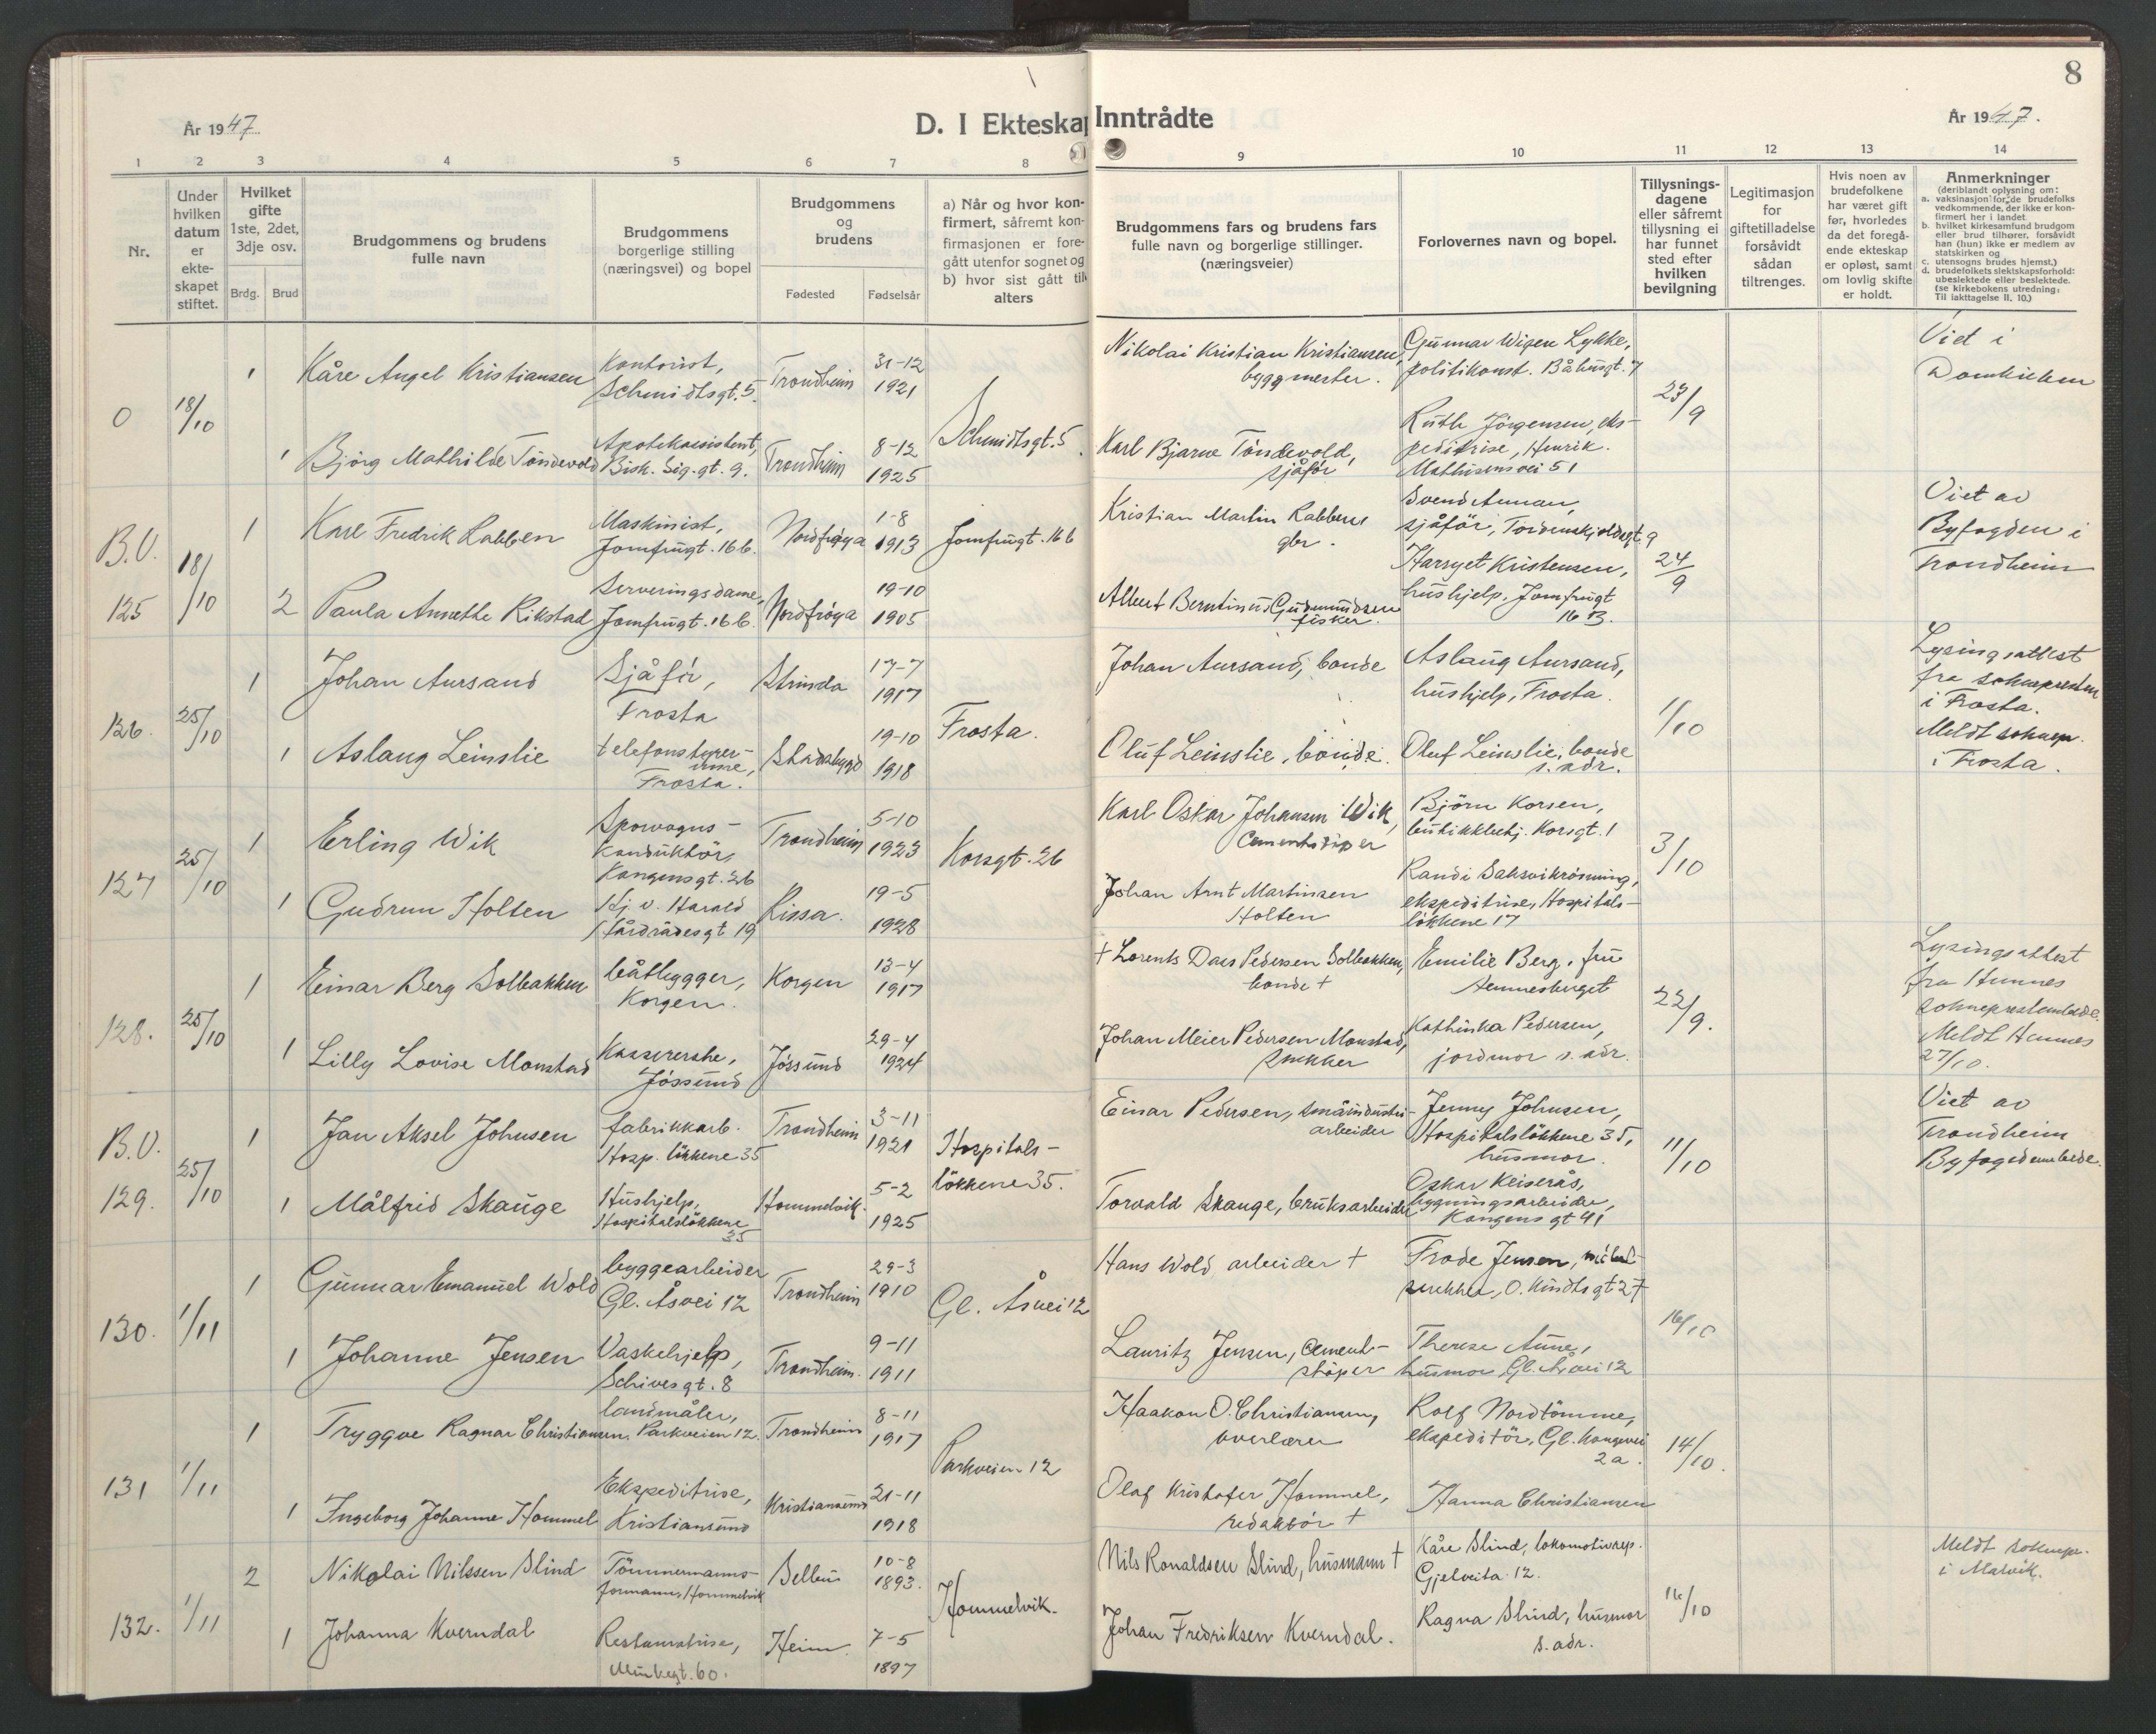 År 1947
D. I Ekteskap
1 2 3 4 5 6 7 8
Nr.
Under
hvilken
datum
er
ekte-
skapet
stiftet.
Hvilket
gifte
1ste, 2det,
3dje osv.
Brdg. Brud
Brudgommens og brudens
fulle navn
Brudgommens
borgerlige stilling
(næringsvei) og bopel
Brudgommens
og
brudens
Fødested Fødselsår
a) Når og hvor kon-
firmert, såfremt kon-
firmasjonen er fore-
gått utenfor sognet og
b) hvor sist gått til
alters
0 18/10
1 Kåre Angel Kristiansen
Kontorist,
Schmidtsgt. 5.
Trondheim
31-12
1921
Schmidtsgt. 5.
1 Bjørg Mathilde Tøndevold
Bisk. Sig. gt. 9.
Trondheim
8-12
1925
B.V.
125
18/10
1 Karl Fredrik Rabben
Maskinist,
Jomfrugt. 16 b.
Nordfrøya
1-8
1913
Jomfrugt. 16 b
2 Paula Annethe Rikstad
Serveringsdame,
Jomfrugt. 16 b.
Nordfrøya
19-10
1905
126. 25/10
1 Johan Aursand
Sjåfør,
Frosta
Strinda
17-7
1917
Frosta.
1 Aslaug Leinslie
telefonstyrer-
inne,
Frosta.
Stadsbygd
19-10
1918
127 25/10
1 Erling Wik
Sporvogns-
konduktör,
Kongensgt. 26
Trondheim
5-10
1923
Korsgt. 26
1 Gudrun Holten
Hj. v. Harald
Hårdrådesgt 19
Rissa.
19-5
1928
128. 25/10
1 Einar Berg Solbakken
båtbygger,
Korgen.
Korgen
13-4
1917
1 Lilly Lovise Monstad
Kassererske,
Jössund
Jössund
29-4
1924
B.V.
129.
25/10
1 Jan Aksel Johnsen
fabrikkarb.
Hosp. løkkene 35
Trondheim
3-11
1921
Hospitals-
løkkene 35.
1 Målfrid Skauge
Hushjelp,
Hospitalsløkkene
35
Hommelvik.
5-2
1925
130. 1/11
1 Gunnar Emanuel Wold
byggearbeider
Gl. Åsvei 12
Trondheim
29-3
1910
Gl. Åsvei 12
1 Johanne Jensen
Vaskehjelp,
Schives gt. 8
Trondheim.
9-11
1911
131 1/11
1 Tryggve Ragnar Christiansen.
landmåler,
Parkveien 12.
Trondheim
8-11
1917
Parkveien 12
1 Ingeborg Johanne Hommel
Ekspeditrise,
Kristiansund
Kristiansund
21-11
1918
132. 1/11
2 Nikolai Nilssen Slind
Tömmermanns-
formann, Hommelvik
Selbu
10-8
1893.
Hommelvik.
1 Johanna Kverndal
Restauratrise,
Munkegt. 60.
Heim.
7-5
1897
8
Inntrådte
År 1947.
9 10 11 12 13 14
Brudgommens fars og brudens fars
fulle navn og borgerlige stillinger.
(næringsveier)
Forlovernes navn og bopel.
Tillysnings-
dagene
eller såfremt
tillysning ei
har funnet
sted efter
hvilken
bevilgning
Legitimasjon
for
giftetilladelse
forsåvidt
sådan
tiltrenges.
Hvis noen av
brudefolkene
har været gift
før, hvorledes
da det foregå-
ende ekteskap
er opløst, samt
om lovlig skifte
er holdt.
Anmerkninger
(deriblandt oplysning om:
a. vaksinasjon for de brudefolks
vedkommende, der ikke er kon-
firmert her i landet
b. hvilket kirkesamfund brudgom
eller brud tilhører, forsåvidt
han (hun) ikke er medlem av
statskirken og
c. utensogns brudes hjemst.)
d. brudefolkets slektskapsforhold:
ubeslektede eller beslektede.
(se kirkebokens utredning:
Til iakttagelse II, 10.)
Nikolai Kristian Kristiansen,
byggmester.
Gunnar Wigen Lykke,
politikonst. Båhusgt. 7
23/9
Viet i
Domkirken
Karl Bjarne Tøndevold,
sjåfør
Ruth Jörgensen, eks-
peditrise, Henrik
Mathisens vei 51
Kristian Martin Rabben,
gbr.
Svend Aunan,
sjåför, Tordenskjoldsgt. 9
24/9
Viet av
Byfogden i
Trondheim
Albert Berntinus Gudmundsen
fisker.
Harryet Kristensen,
hushjelp, Jomfrugt
16 B.
Johan Aursand, bonde
Aslaug Aursand,
hushjelp, Frosta.
1/10
Lysingsattest
fra soknepresten
i Frosta.
Meldt soknepr.
i Frosta.
Oluf Leinslie, bonde.
Oluf Leinslie, bonde
s. adr.
Karl Oskar Johansen Wik,
Cementstøper
Björn Korsen,
butikkbetj. Korsgt. 1
3/10
Johan Arnt Martinsen
Holten
Randi Saksvikrönning,
ekspeditrise, Hospitals-
løkkene 17
† Lorents Daas Pedersen Solbakken,
bonde †
Emilie Berg, fru
Hemnesberget
22/9.
Lysingsattest
fra Hemnes
sokneprestembede.
Meldt Hemnes
27/10.
Johan Meier Pedersen Monstad,
snekker
Kathinka Pedersen,
jordmor s. adr.
Einar Pedersen, småindustri-
arbeider
Jenny Johnsen,
Hospitalsløkkene 35,
husmor.
11/10
Viet av
Trondheim
Byfogdembede.
Torvald Skauge, bruksarbeider
Oskar Keiserås,
bygningsarbeider,
Kongens gt 41
Hans Wold arbeider †
Frode Jensen, möbel-
snekker, O. Kindts gt 27
16/10
Lauritz Jensen, cement-
støper
Therese Aune,
husmor Gl. Åsvei 12
Haakon O. Christiansen,
overlærer
Rolf Nordtömme,
ekspeditör, Gl. kongevei
2a.
14/10.
Olaf Kristofer Hommel,
redaktör †
Hanna Christiansen
Nils Ronaldsen Slind, husmann †
Kåre Slind, lokomotivrep.
Gjelveita 12.
16/10
Meldt soknepr.
i Malvik.
Johan Fredriksen Kverndal.
Ragna Slind, husmor
s. adr.